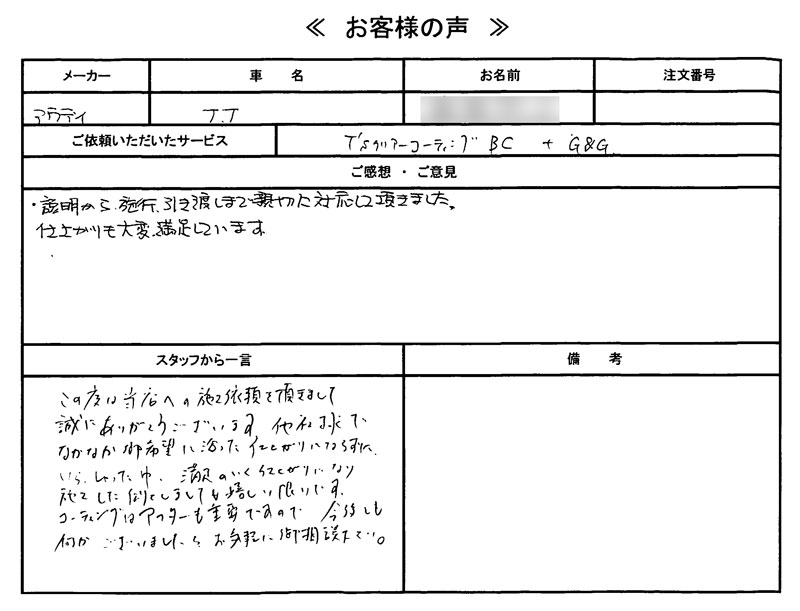 ≪ お客様の声 ≫
メーカー 車 名 お名前 注文番号
アウディ T.T
ご依頼いただいたサービス T'sクリアーコーティング BC + G&G
ご感想・ご意見
・説明から施行、引き渡しまで親切に対応して頂きました。
仕上がりも大変、満足しています
スタッフから一言 備 考
この度は当店への施工依頼を頂きまして
誠にありがとうございます 他社様で
なかなか御希望に沿った仕上がりにならずに
いらしゃった中、満足のいく仕上がりになり
施工した側としましても嬉しい限りです。
コーティングはアフターも重要ですので 今後も
何か ございましたら お気軽に御相談下さい。